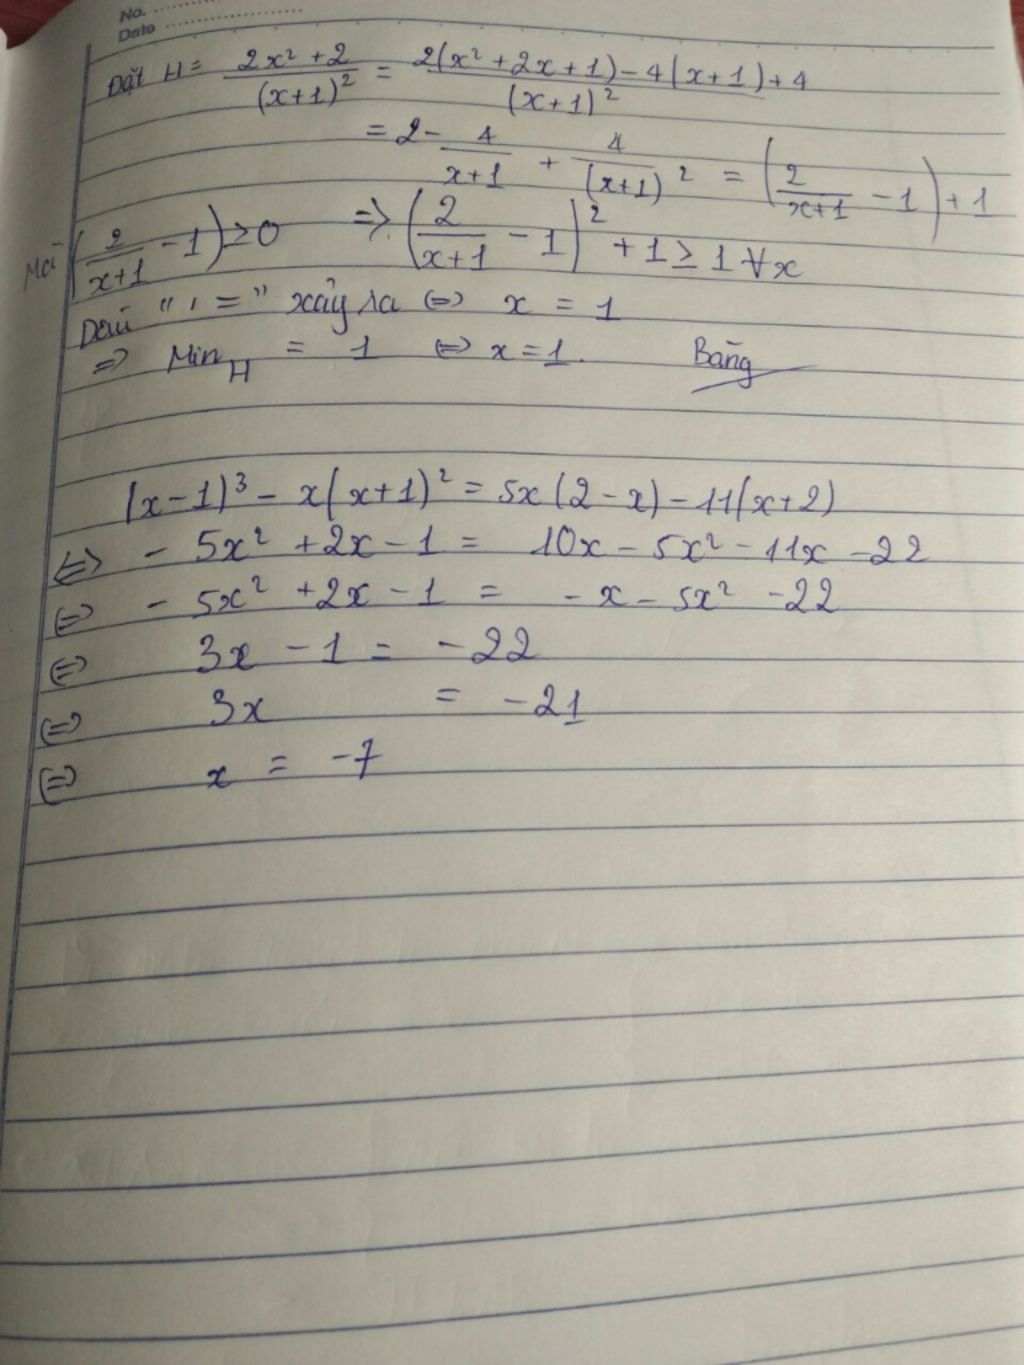 No. ..................
Date ..................
Đặt H = \frac{2x² + 2}{(x+1)²} = \frac{2(x² + 2x + 1) - 4(x+1) + 4}{(x+1)²}
= 2 - \frac{4}{x+1} + \frac{4}{(x+1)²} = (\frac{2}{x+1} - 1) + 1
Mà (\frac{2}{x+1} - 1) ≥ 0 ⇒ (\frac{2}{x+1} - 1)² + 1 ≥ 1 ∀x
Dấu " ' = " xảy ra ⇔ x = 1
⇒ Min_H = 1 ⇔ x = 1. Bằng
(x-1)³ - x(x+1)² = 5x(2-x) - 11(x+2)
⇔ - 5x² + 2x - 1 = 10x - 5x² - 11x - 22
⇔ - 5x² + 2x - 1 = - x - 5x² - 22
⇔ 3x - 1 = - 22
⇔ 3x = - 21
⇔ x = - 7